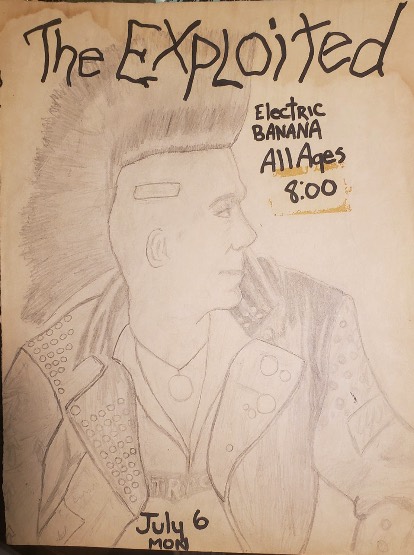 The Exploited
Electric
BANANA
All Ages
8:00
July 6
MON